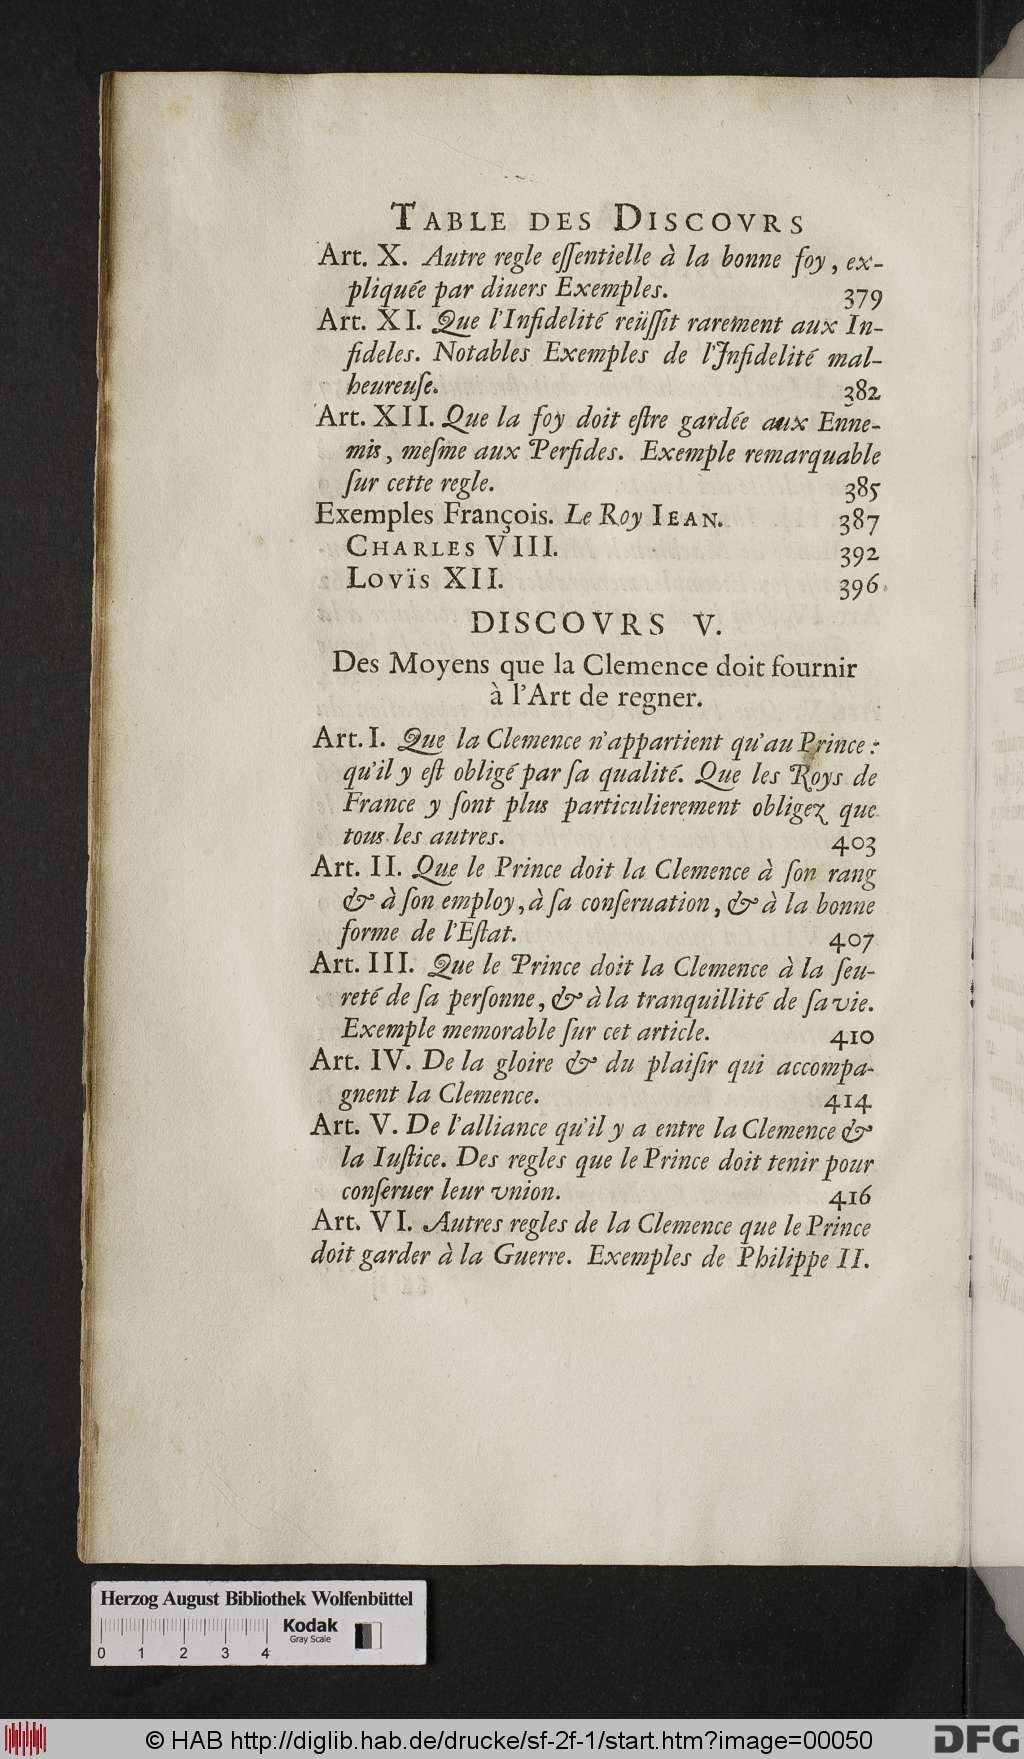 TABLE DES DISCOVRS
Art. X. Autre regle eſſentielle à la bonne foy, ex-
pliquée par diuers Exemples. 379
Art. XI. Que l'Infidelité reüſſit rarement aux In-
fideles. Notables Exemples de l'Infidelité mal-
heureuſe. 382
Art. XII. Que la foy doit eſtre gardée aux Enne-
mis, meſme aux Perfides. Exemple remarquable
ſur cette regle. 385
Exemples François. Le Roy IEAN. 387
CHARLES VIII. 392
Lovïs XII. 396.
DISCOVRS V.
Des Moyens que la Clemence doit fournir
à l'Art de regner.
Art. I. Que la Clemence n'appartient qu'au Prince:
qu'il y eſt obligé par ſa qualité. Que les Roys de
France y ſont plus particulierement obligez que
tous les autres. 403
Art. II. Que le Prince doit la Clemence à ſon rang
& à ſon employ, à ſa conſeruation, & à la bonne
forme de l'Eſtat. 407
Art. III. Que le Prince doit la Clemence à la ſeu-
reté de ſa perſonne, & à la tranquillité de ſa vie.
Exemple memorable ſur cet article. 410
Art. IV. De la gloire & du plaiſir qui accompa-
gnent la Clemence. 414
Art. V. De l'alliance qu'il y a entre la Clemence &
la Iuſtice. Des regles que le Prince doit tenir pour
conſeruer leur vnion. 416
Art. VI. Autres regles de la Clemence que le Prince
doit garder à la Guerre. Exemples de Philippe II.
Herzog August Bibliothek Wolfenbüttel
Kodak
Gray Scale
0 1 2 3 4
© HAB http://diglib.hab.de/drucke/sf-2f-1/start.htm?image=00050
DFG